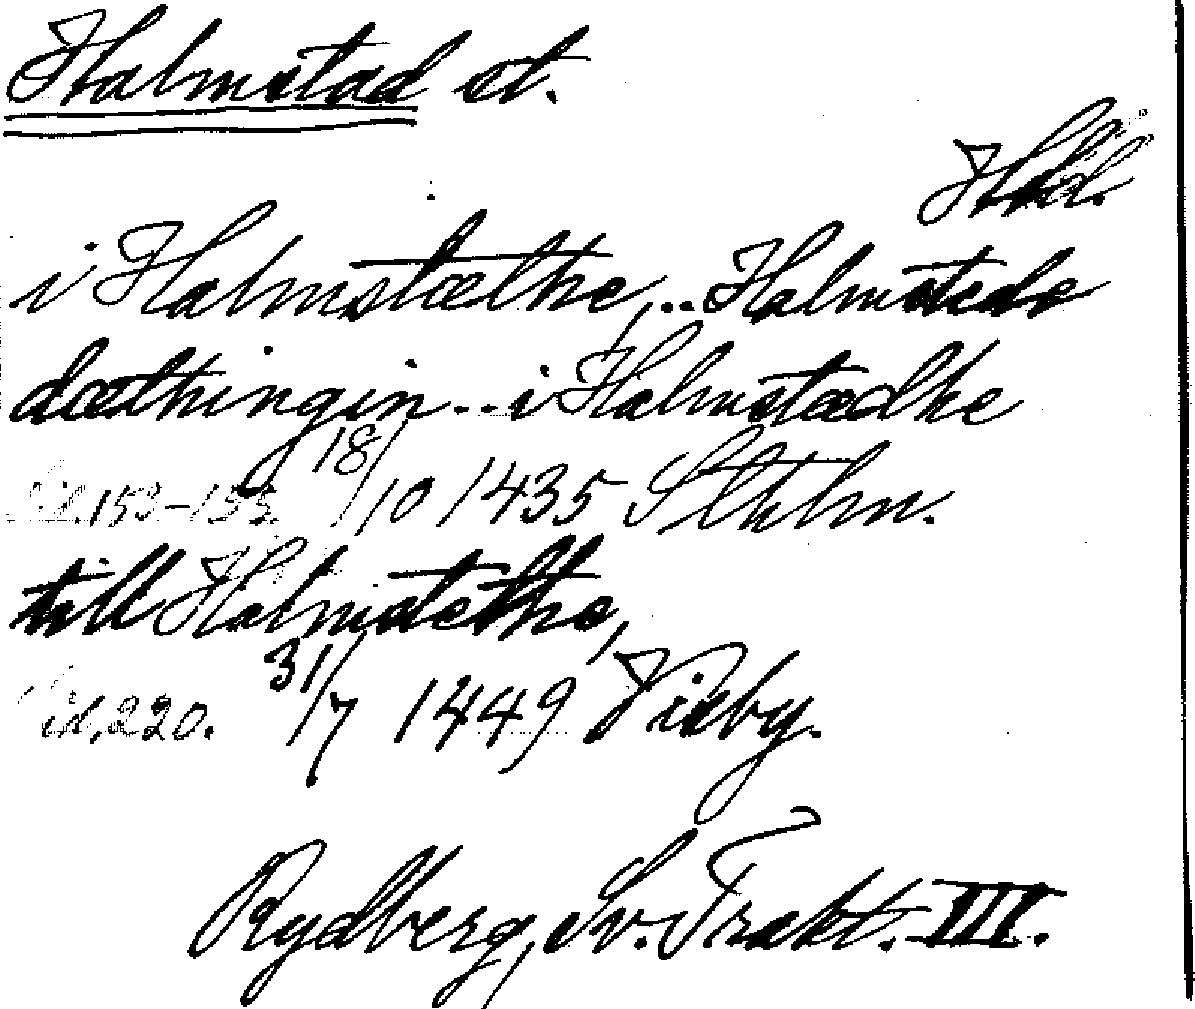 Halmstad st.
Hall.
i Halmstælhe, .. Halmstede
dæthingin .. i Halmstædhe
sid. 153-155. 18/10 1435 Sthlm.
till Halmstethe,
sid. 220. 31/7 1449 Visby.
Rydberg, Sv. Trakt. III.